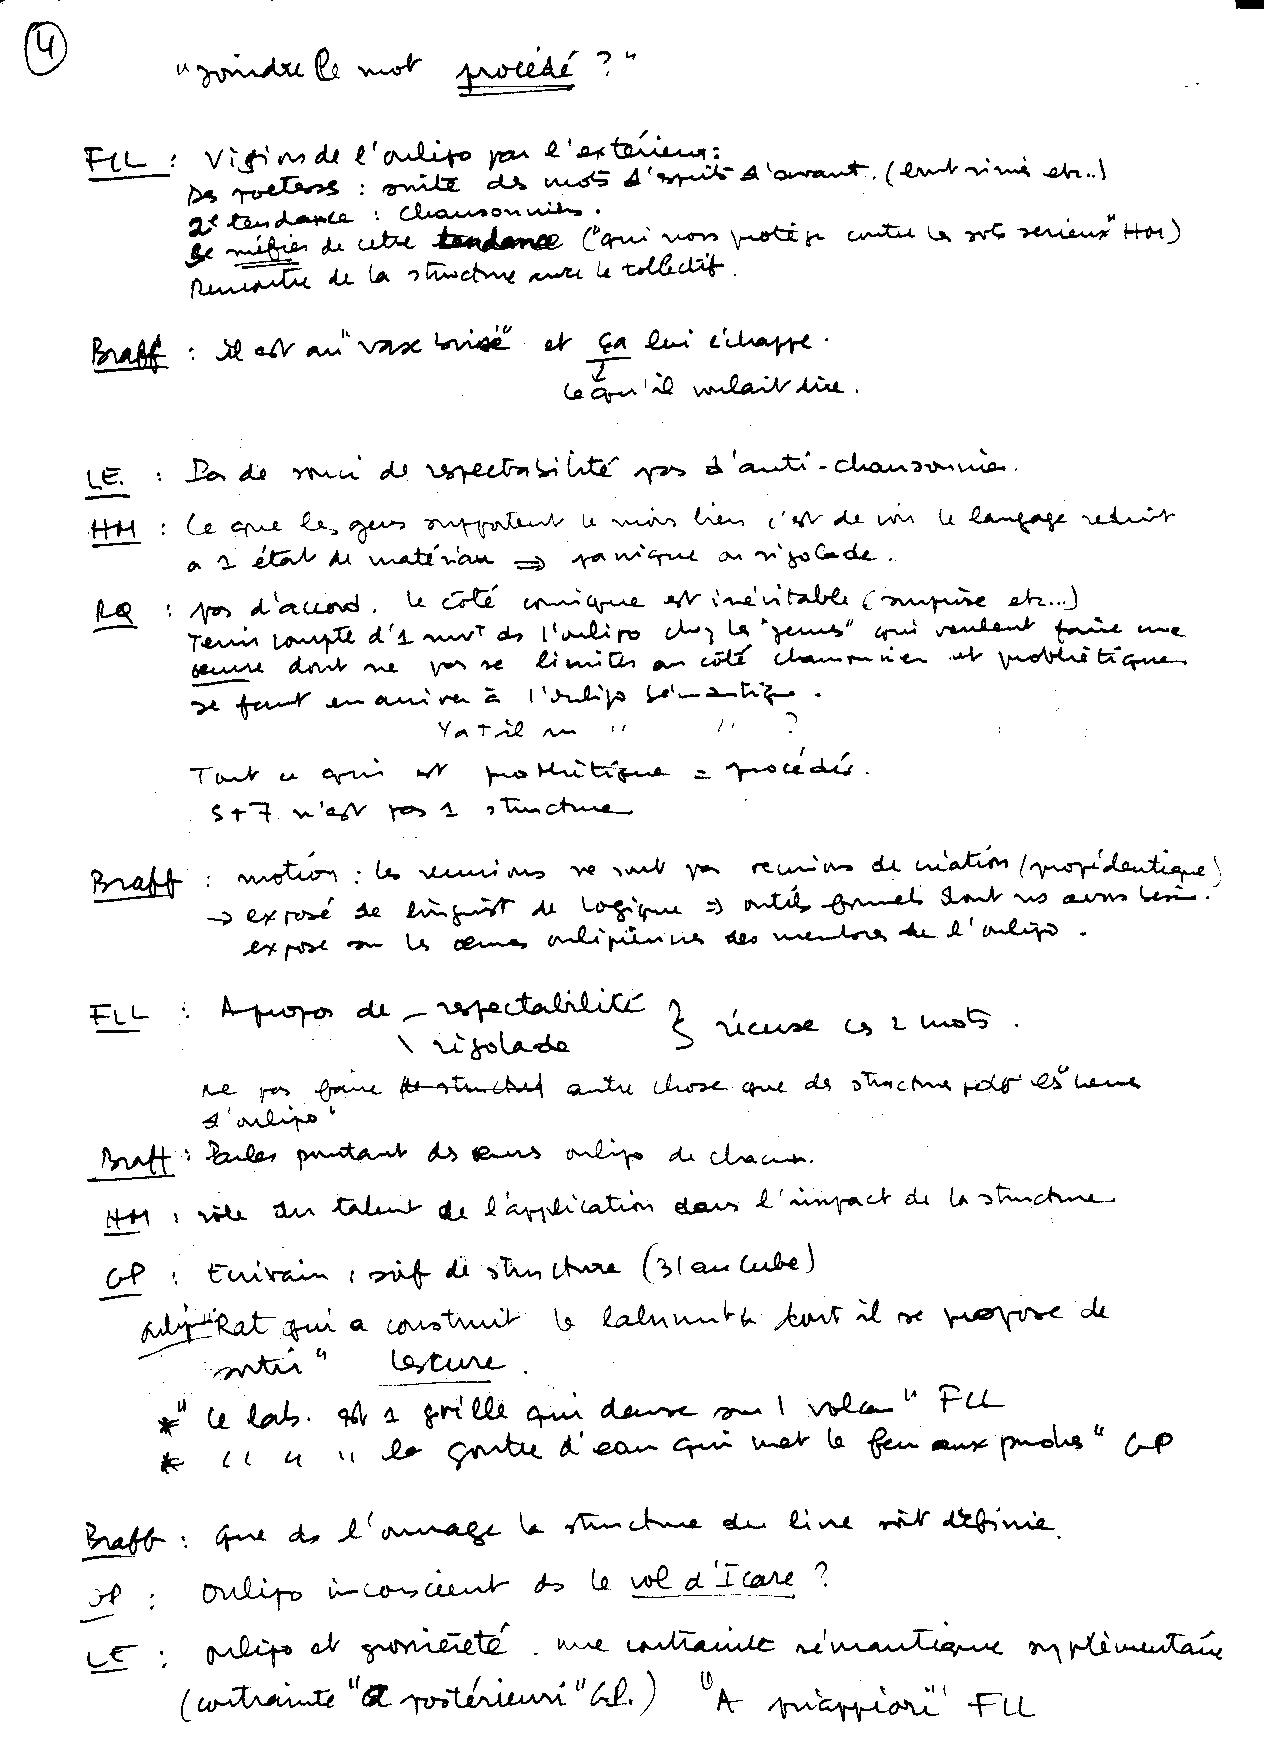 4
"joindre le mot procédé ?"
FLL : Vision de l'oulipo par l'extérieur :
Ds : suite des mots d'esprit d'avant. (bout rimé etc..)
2e tendance : chansonniers.
Se méfier de cette tendance ("qui nous protège contre les sots serieux" HM)
Rencontre de la structure avec le collectif.
Braff : il est au "vase brisé" et ça lui échappe.
ce qu'il voulait dire.
LE. : Pas de souci de respectabilité pas d'anti-chansonnier.
HM : Ce que les gens supportent le moins bien c'est de voir le langage réduit
a 1 état de matériau ⇒ panique ou rigolade.
RQ : pas d'accord. le côté comique est inévitable (surprise etc...)
Tenir compte d'1 mvt ds l'oulipo chez les "jeunes" qui veulent faire une
oeuvre dont ne pas se limiter au côté chansonnier et prothétique
se faut en arriver à l'oulipo sémantiq.
Y a t il un " " ?
Tout ce qui est prothétique = procédés.
S+7 n'est pas 1 structure
Braff : motion : les reunions ne sont pas reunions de création (propédentique)
→ exposé de linguist de logique ⇒ outils formels dont ns avons besoin.
exposé sur les oeuvres oulipiennes des membres de l'oulipo.
FLL : A propos de – respectabilité
\ rigolade } récuse ces 2 mots.
ne pas faire de structures autre chose que des structures pdt les "heures
d'oulipo"
Braff : Parler pourtant ds oeuvres oulipo de chacun.
HM : rôle du talent de l'application dans l'impact de la structure
GP : Ecrivain : soif de structure (31 au cube)
oulip "Rat qui a construit le labyrinthe dont il se propose de
sortir" Lescure.
* "Le lab. est 1 grille qui danse sur 1 volcan" FLL
* " " " la goutte d'eau qui met le feu aux poudres" GP
Braff : que ds l'ouvrage la structure du livre soit définie.
GP : Oulipo inconscient ds le vol d'Icare ?
LE : oulipo et grossièreté. une contrainte sémantique supplémentaire
(contrainte "a postérieuri" GP.) "A priappiori" FLL